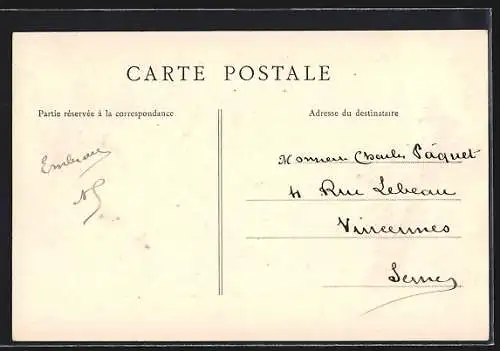 CARTE POSTALE
Partie réservée à la correspondance
Adresse du destinataire
Monsieur Charles Pâquet
4 Rue Lebeau
Vincennes
Seine